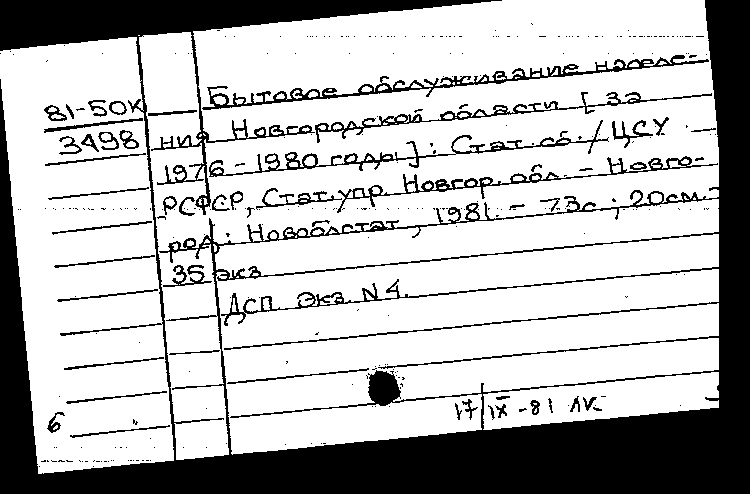 81-50К Бытовое обслуживание населе-
3498 ния Новгородской области [за
1976-1980 годы]: Стат. сб. / ЦСУ
РСФСР, Стат. упр. Новгор. обл. - Новго-
род: Новоблстат, 1981. - 73с.; 20см. -
35 экз
ДСП Экз N 4.
6
17/IX-81 ЛК